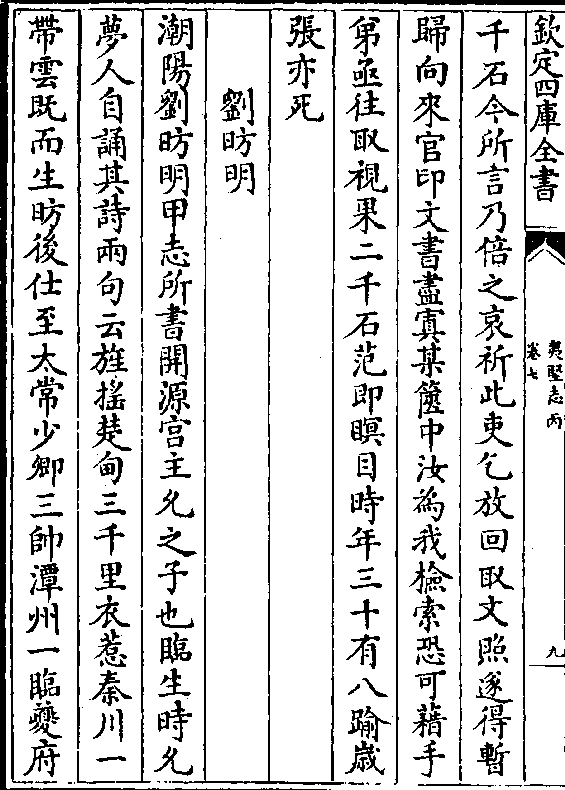 欽定四庫全書
夷堅志丙
卷七
九
千石今所言乃倍之哀祈此吏乞放回取文照遂得暫
歸向來官印文書盡寘某篋中汝為我檢索恐可藉手
弟亟往取視果二千石范即瞑目時年三十有八踰歲
張亦死
劉昉明
潮陽劉昉明甲志所書開源宮主允之子也臨生時允
夢人自誦其詩兩句云旌摇楚甸三千里衣惹秦川一
帶雲既而生昉後仕至太常少卿三帥潭州一臨夔府